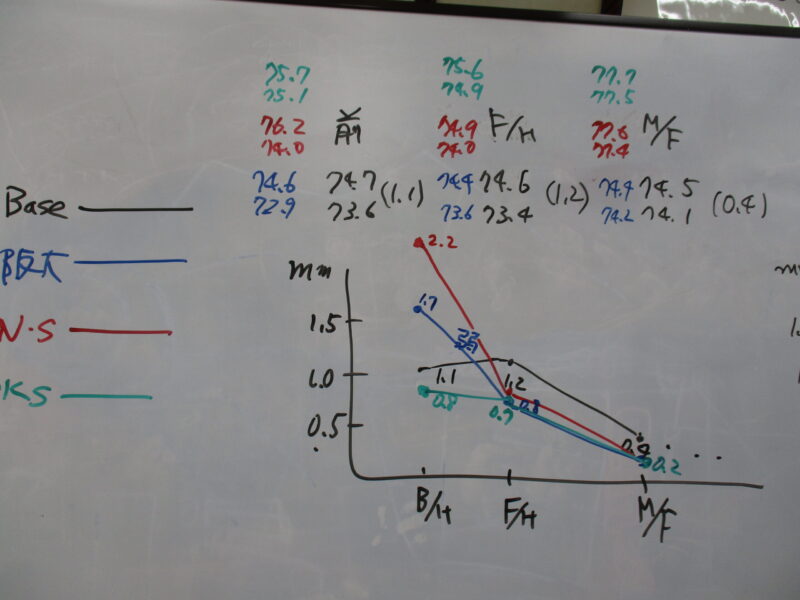 75.7 75.6 77.7
75.1 74.9 77.5
76.2 74.9 F/H 77.6 M/F
74.0 74.0 77.4
74.6 74.7 (1.1) 74.4 74.6 (1.2) 74.4 74.5 (0.4)
72.9 73.6 73.6 73.4 74.2 74.1
Base
阪大
N.S
KS
mm
2.2
1.7
1.5
1.0
1.1
1.2
0.8
0.7
0.8
0.5
0.4
0.2
B/H F/H M/F